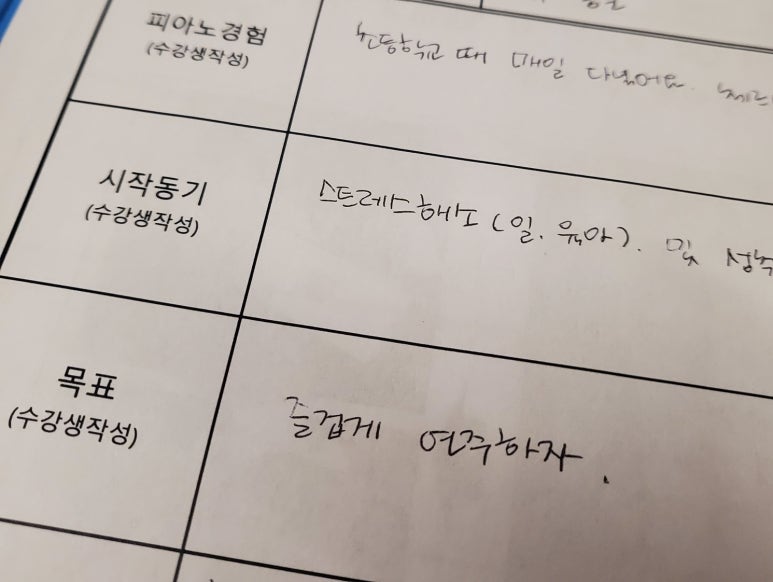 피아노경험
(수강생작성)
초등학교 때 매일 다녔어요.
시작동기
(수강생작성)
스트레스해소 (일, 육아). 및
목표
(수강생작성)
즐겁게 연주하자.